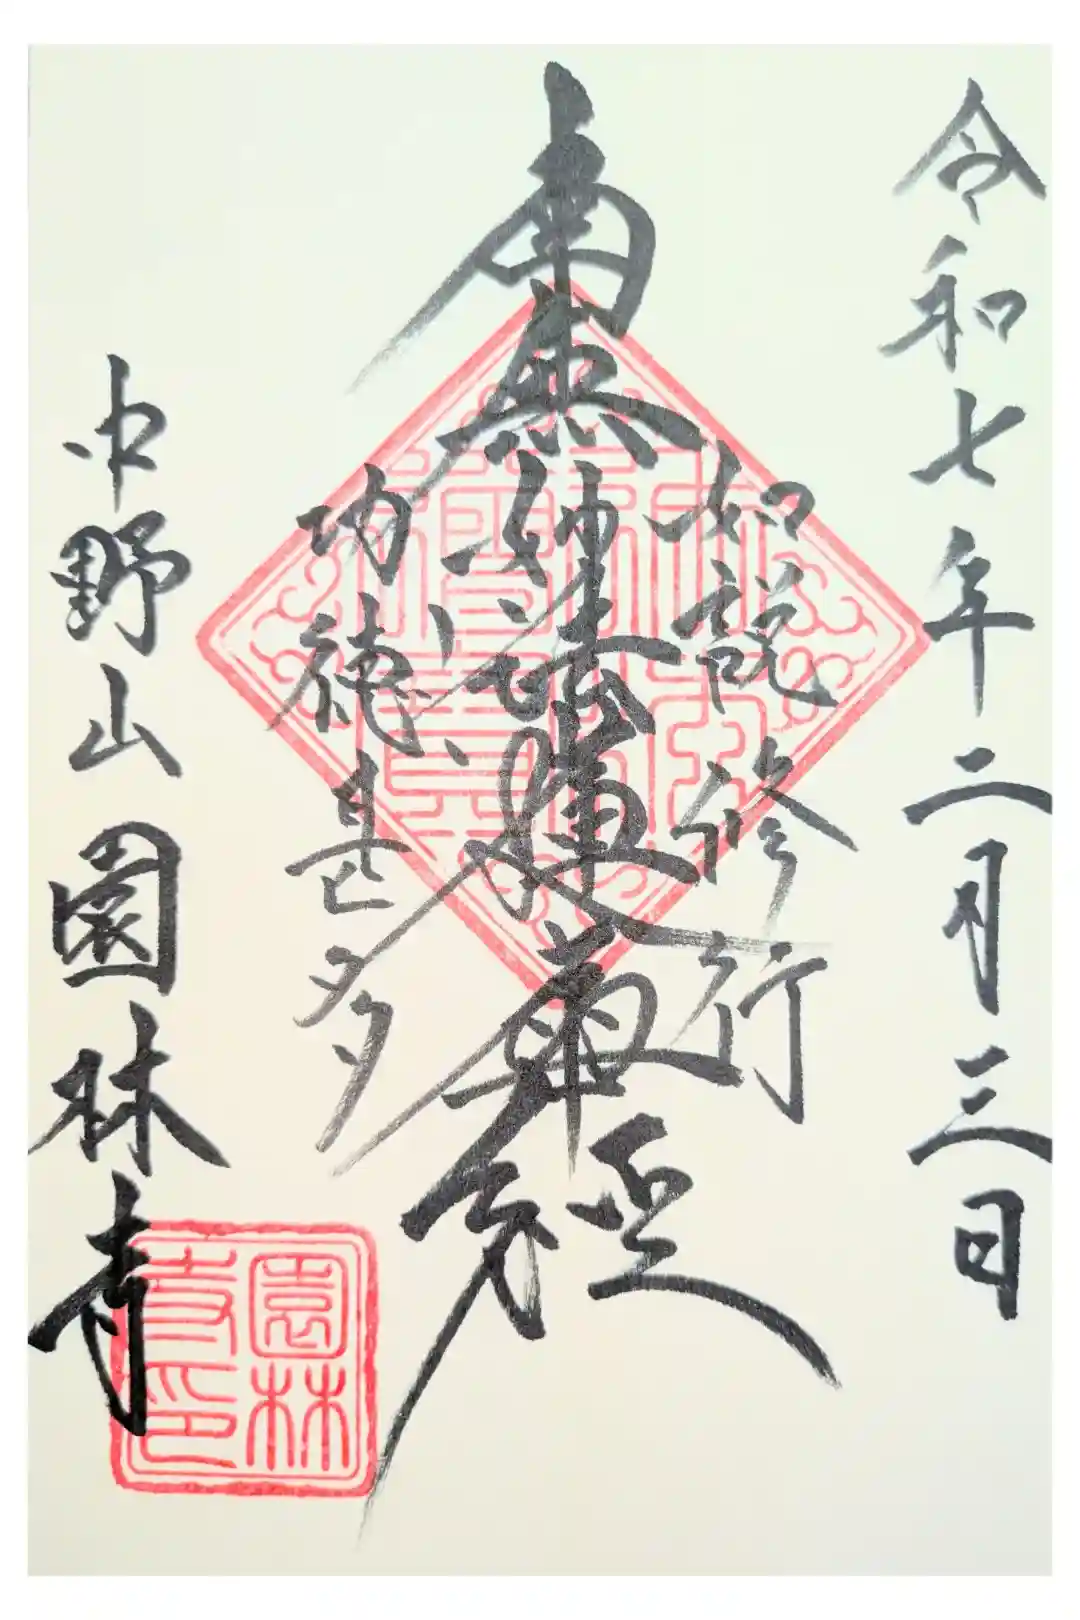 令和七年二月三日
如説修行
南無妙法蓮華經
功徳甚多
中野山園林寺
園林
寺印